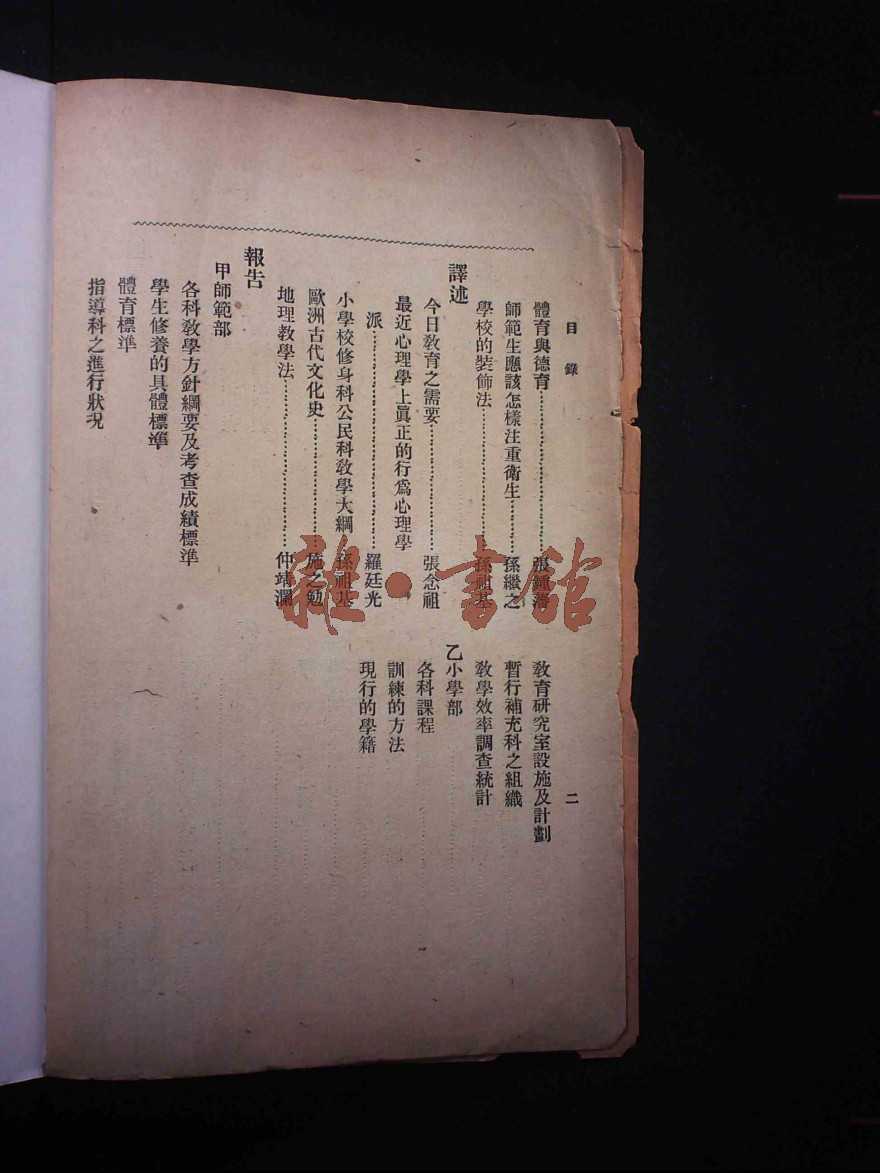 目錄
二
體育與德育……………張鍾藩
師範生應該怎樣注重衛生………孫繼之
學校的裝飾法……………孫祖基
譯述
今日教育之需要……………張念祖
最近心理學上眞正的行爲心理學
派……………羅廷光
小學校修身科公民科教學大綱 孫祖基
歐洲古代文化史……………施之勉
地理教學法……………仲靖瀾
報告
甲師範部
各科教學方針綱要及考查成績標準
學生修養的具體標準
體育標準
指導科之進行狀況
教育研究室設施及計劃
暫行補充科之組織
教學效率調查統計
乙小學部
各科課程
訓練的方法
現行的學籍
雜·書館